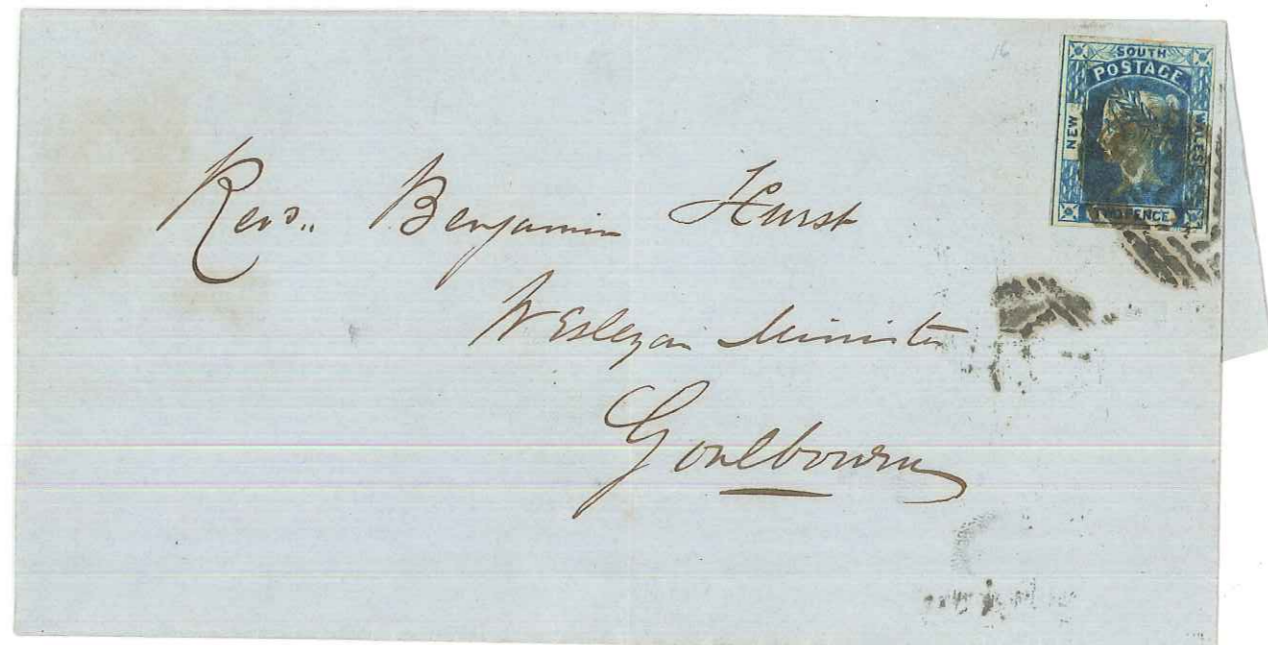 16
SOUTH
POSTAGE
NEW
WALES
TWO PENCE
Revd. Benjamin Hurst
Wesleyan Minister
Goulbourn